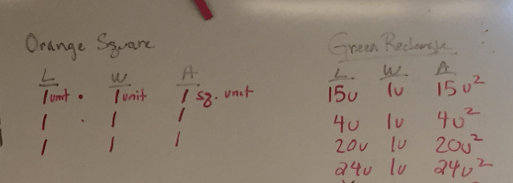 Orange Square
L W A
1 unit · 1 unit 1 sq. unit
1 · 1 1
1 1 1
Green Rectangle
L W A
15u 1u 15u²
4u 1u 4u²
20u 1u 20u²
24u 1u 24u²